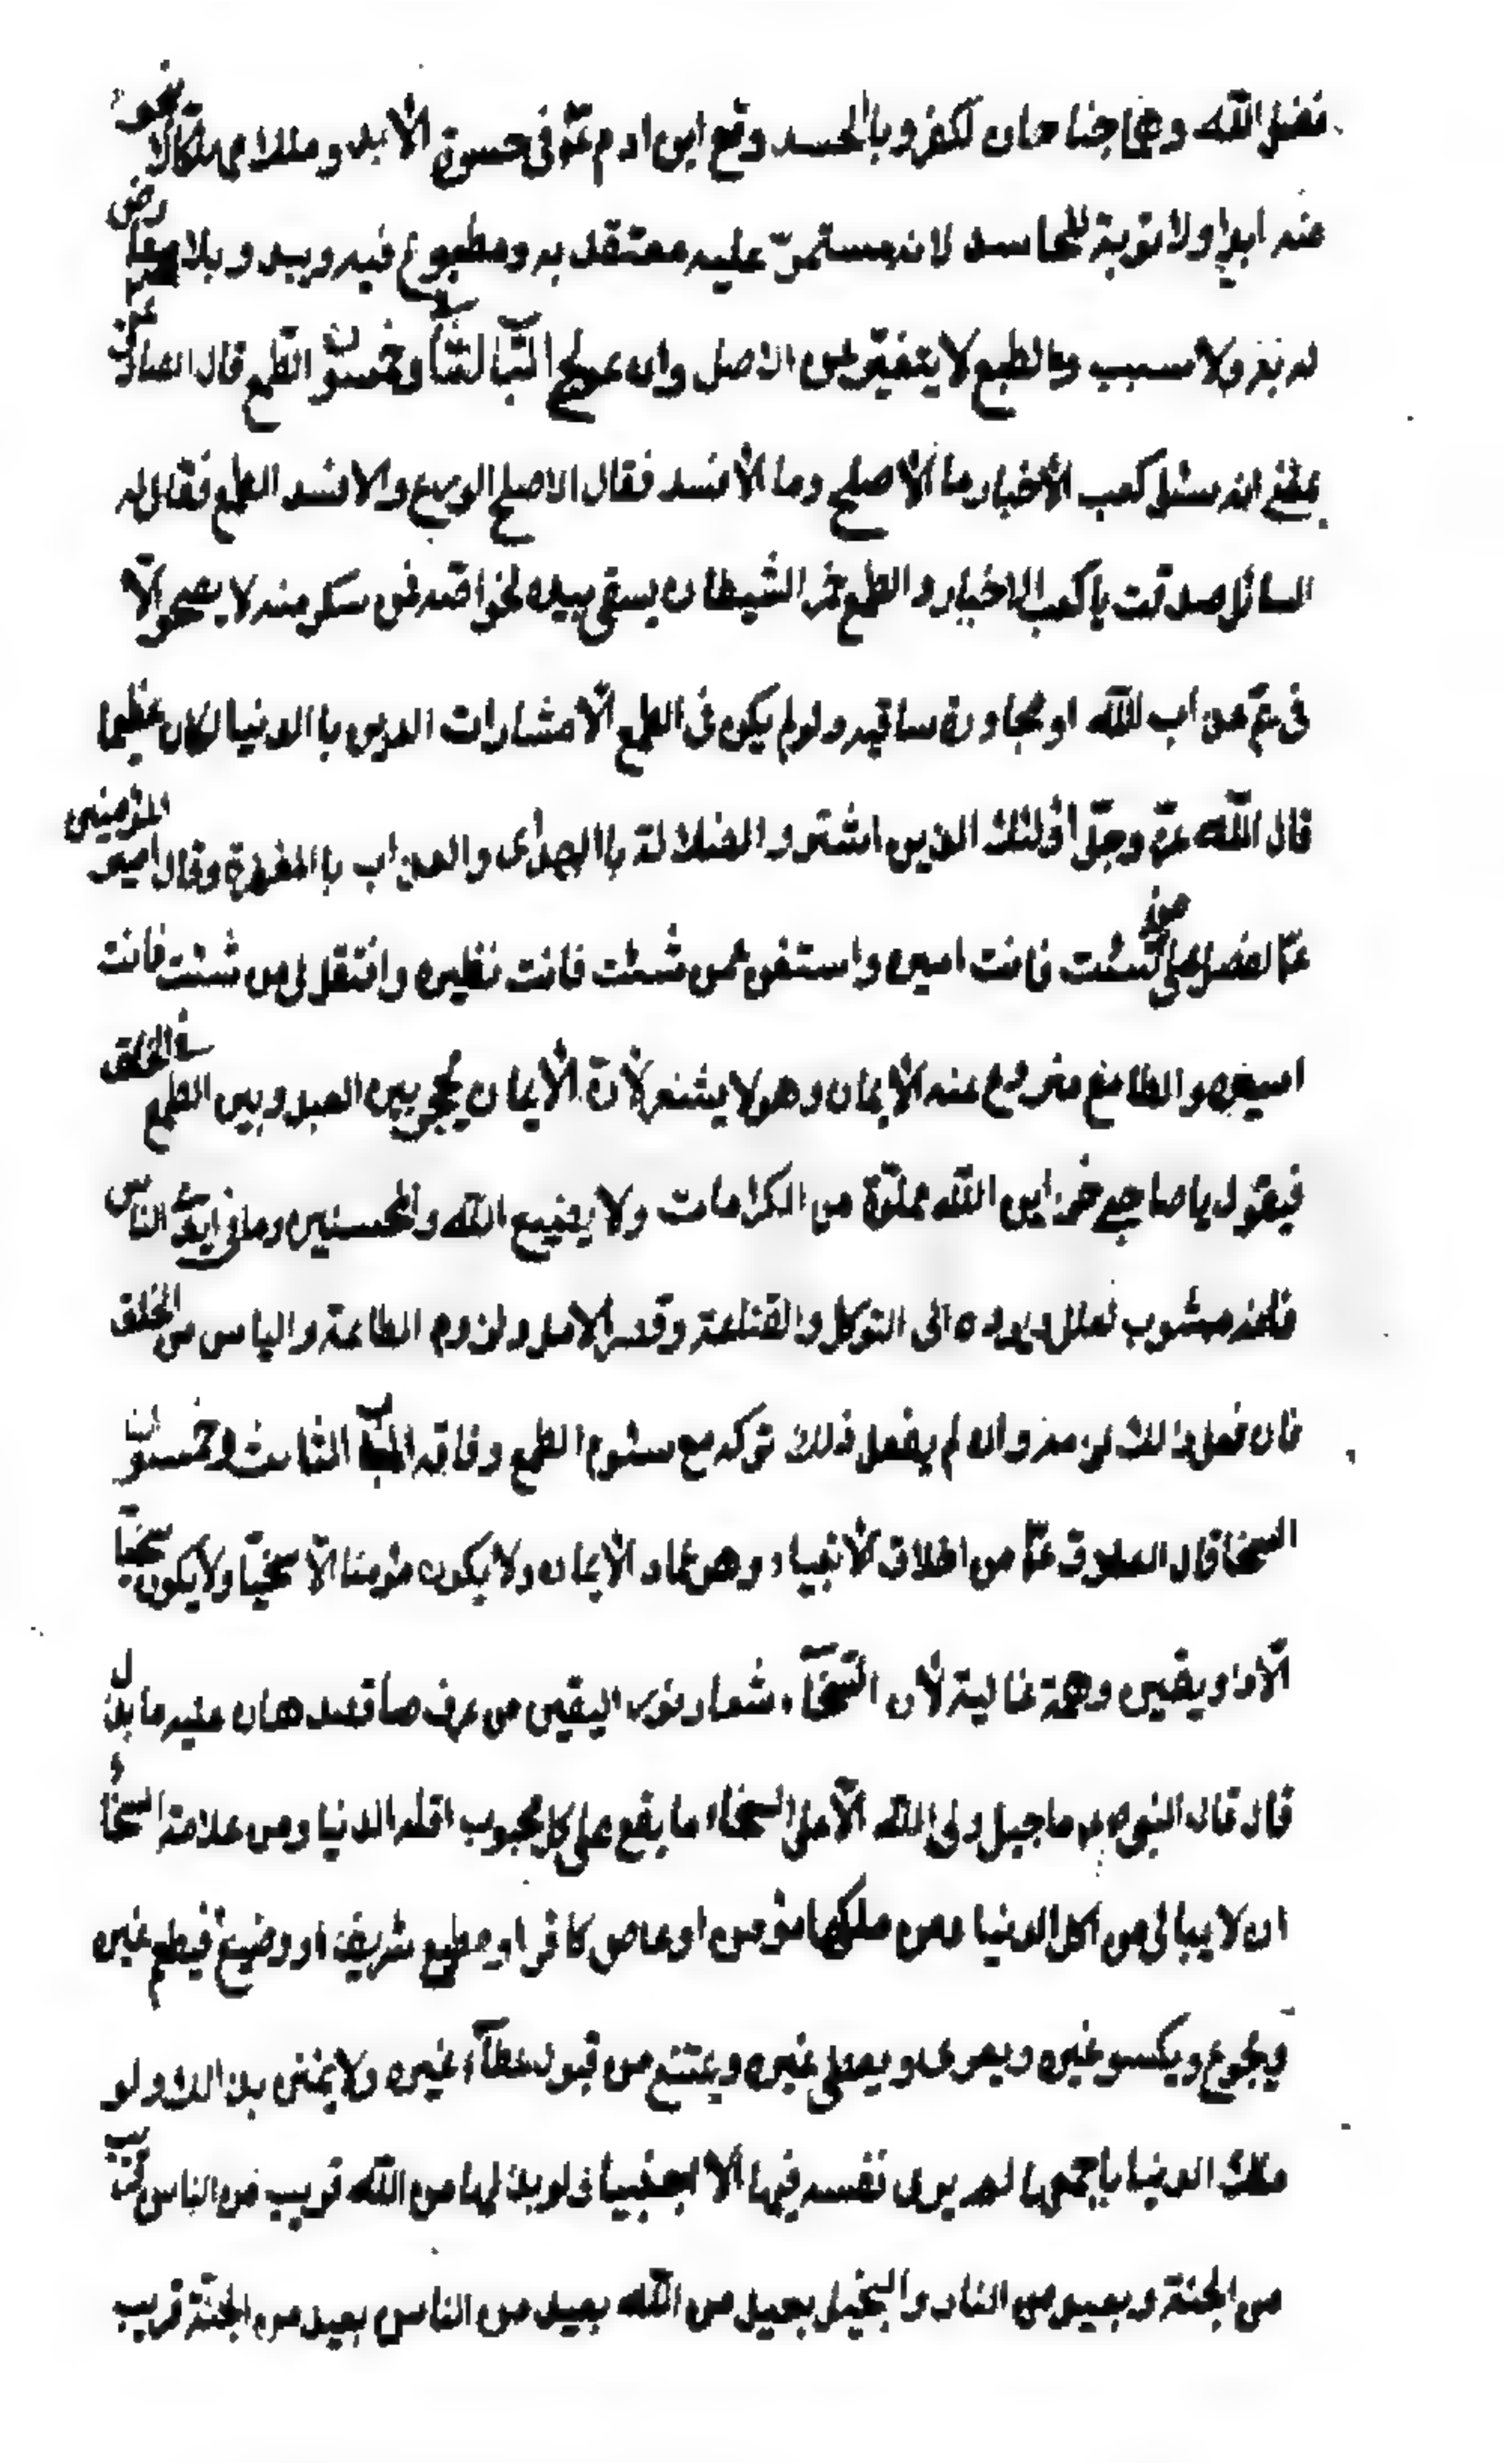 فضل الله وهما جناحان لكفر وبالحسد وقع ابن ادم ع في حسرة الأبد وهلك مهلكا لا ينجو
منه ابدا ولا توبة للحاسد لانه مستمرّ عليه معتقد به ومطبوع فيه ويبدو بلا معارض
له به ولا سبب والطبع لا يتغير من الاصل وان عولج الباب الثالث وخمسون الطمع قال الصادق ع
بلغني انه سئل كعب الأخبار ما الأصلح وما الأفسد فقال الاصلح الورع والافسد الطمع فقال له
السائل صدقت يا كعب الاخبار والطمع خمر الشيطان يسقى بيده لخواصّه فمن سكر منه لا يصحو الّا
في عذاب الله او مجاورة ساقيه ولو لم يكن في الطمع الّا مشارات الدين با الدنيا لكان عظيما
قال الله عزّ وجلّ أولئك الذين اشتروا الضلالة با الهدى والعذاب با المغفرة وقال امير المؤمنين
ع تفضل على من شئت فانت اميره واستغن عمن شئت فانت نظيره وافتقر الى من شئت فانت
اسيره والطامع منزوع عنه الأيمان وهو لا يشعر لأنّ الأيمان يحجب بين العبد وبين الطمع في الخلق
فيقول يا صاحبى خزاين الله مملوّة من الكرامات ولا يضيع الله والمحسنين وما في ايدى الناس
فانه مشوب بعلل ويرده الى التوكل والقناعة وقصر الامل ولزوم الطاعة والياس من الخلق
فان فعل ذلك لزمه وان لم يفعل ذلك تركه مع سئوم الطمع وفاقه الباب الثامن وخمسون
السخا قال الصادق ع من اخلاق الأنبياء وهو عماد الأيمان ولا يكون مؤمنا الّا سخيّا ولا يكون سخيّا
الّا ذا ويقين وهمة عالية لأن السّخآء شعار نور اليقين من عرف ما قصد هان عليه ما بذل
قال قال النبى ص ما جبل ولى الله الّا على السخاء ما يقع على كل محبوب اقله الدنيا ومن علامة السخاء
ان لا يبالى من اكل الدنيا ومن ملكها مؤمن او عاص كافر او مطيع شريف او وضيع فيطعم غيره
ويجوع ويكسو غيره ويعرى ويعطى غيره ويمتنع من قبول عطآء غيره ولا يمنن بذالك ولو
ملك الدنيا باجمعها لم يرى نفسه فيها الّا اجنبيا ولو بذلها من الله قريب من الناس قريب
من الجنة وبعيد من النار والبخيل بعيد من الله بعيد من الناس بعيد من الجنّة قريب